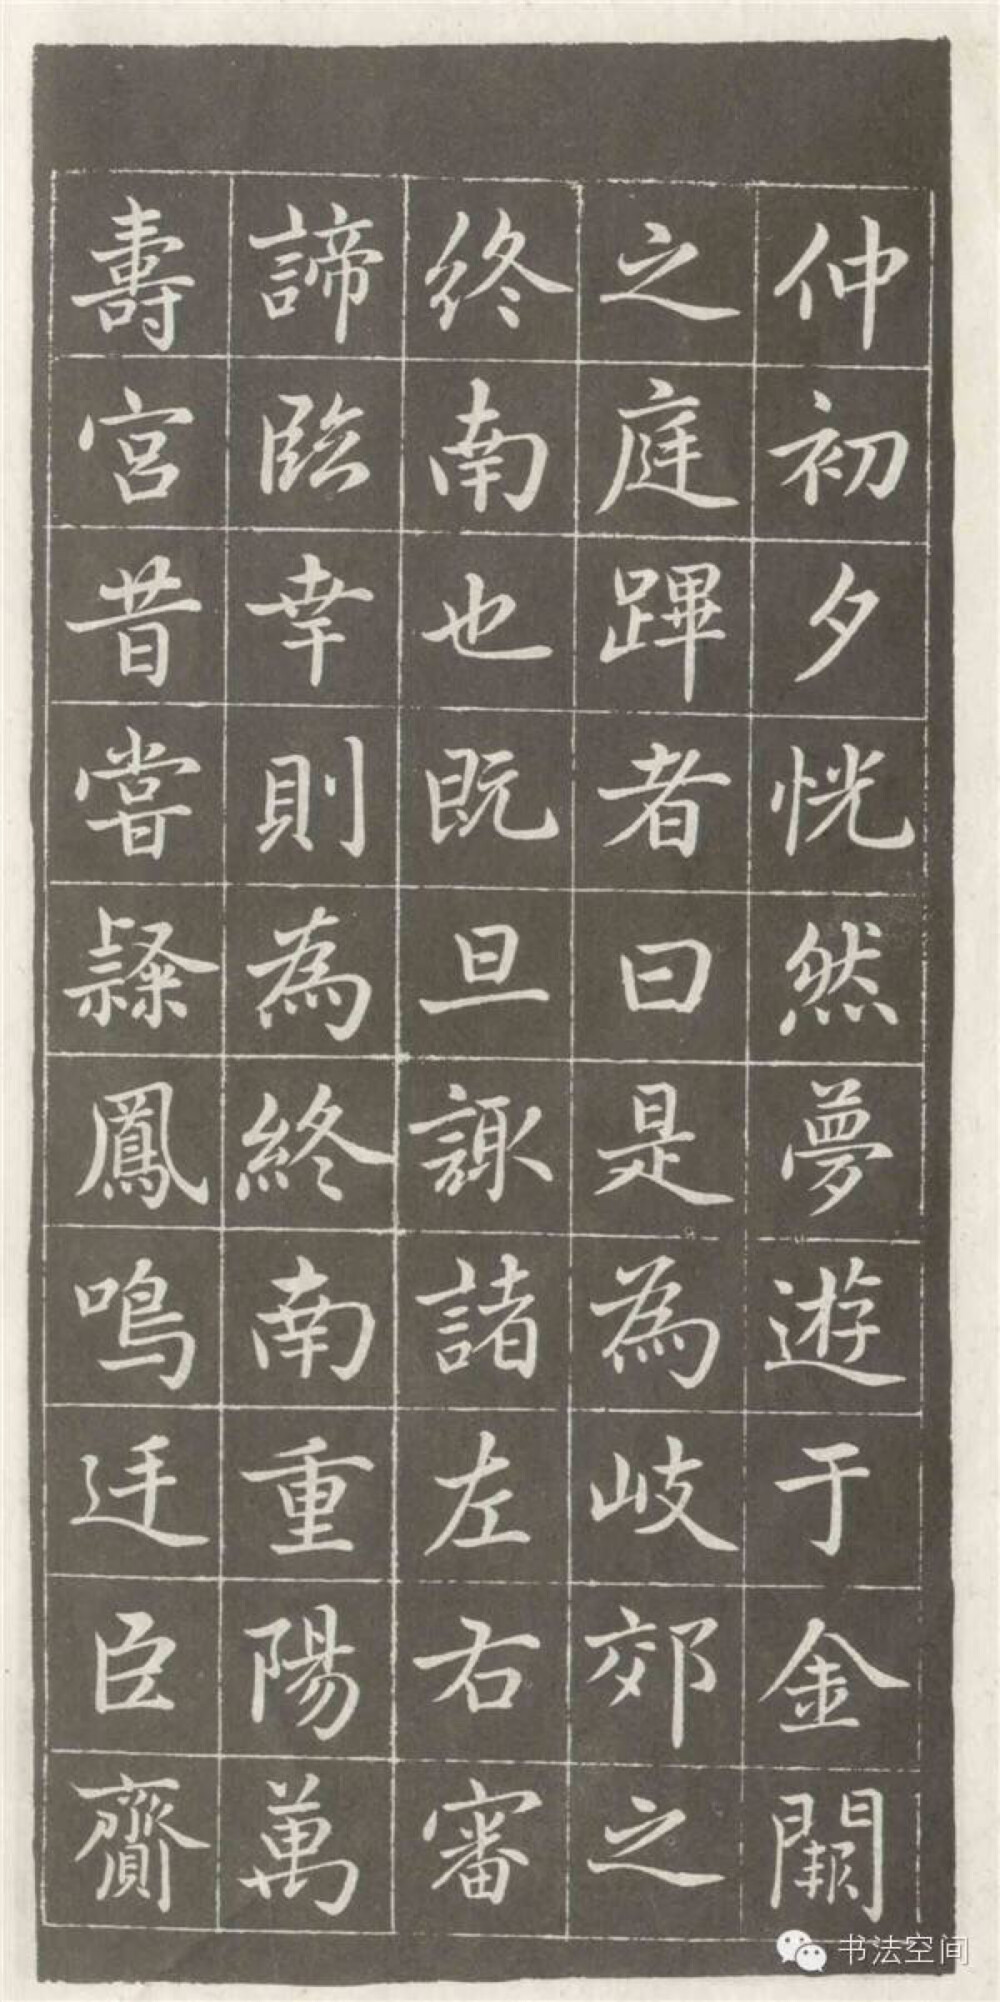 仲初夕恍然夢遊于金闕
之庭蹕者曰是為岐郊之
終南也既旦諏諸左右審
諦臨幸則為終南重陽萬
壽宮昔嘗飱鳳鳴迋臣齎
书法空间